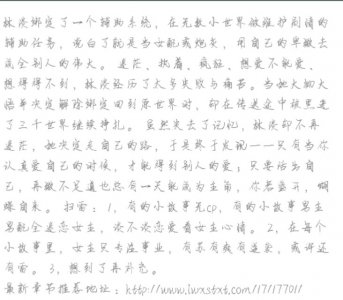 林凌绑定了一个辅助系统，在无数小世界做维护剧情的
辅助任务，说白了就是当女配或炮灰，用自己的卑微去
成全别人的伟大。 迷茫、执着、疯狂、想爱不能爱、
想得得不到，林凌经历了太多失败与痛苦。当她大彻大
悟毕决定解除绑定回到原世界时，却在传送途中被黑走
了三千世界继续挣扎。 虽然失去了记忆，林凌却不再
迷茫，她决定走自己的路，于是终于发现——只有当你
认真爱自己的时候，才能得到别人的爱；只要活出自
己，再微不足道也总有一天能成为主角，你若盛开，蝴
蝶自来。 扫雷：1，有的小故事无CP，有的小故事男主
男配全迷恋女主，凌不凌恋爱看女主心情。2，在每个
小故事里，女主只专注事业，有苏有爽有逆袭，或许还
有雷。3，想到了再补充。
最新章节推荐地址：http://www.lwxstxt.com/17/17701/